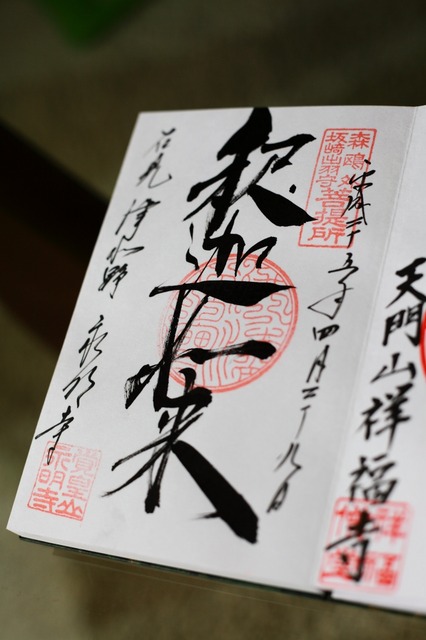 天門山祥福寺
平成二十五年四月二十九日
森鷗外
坂崎出羽守
菩提所
釈迦如来
石州 津和野 永明寺
覺皇山
永明寺